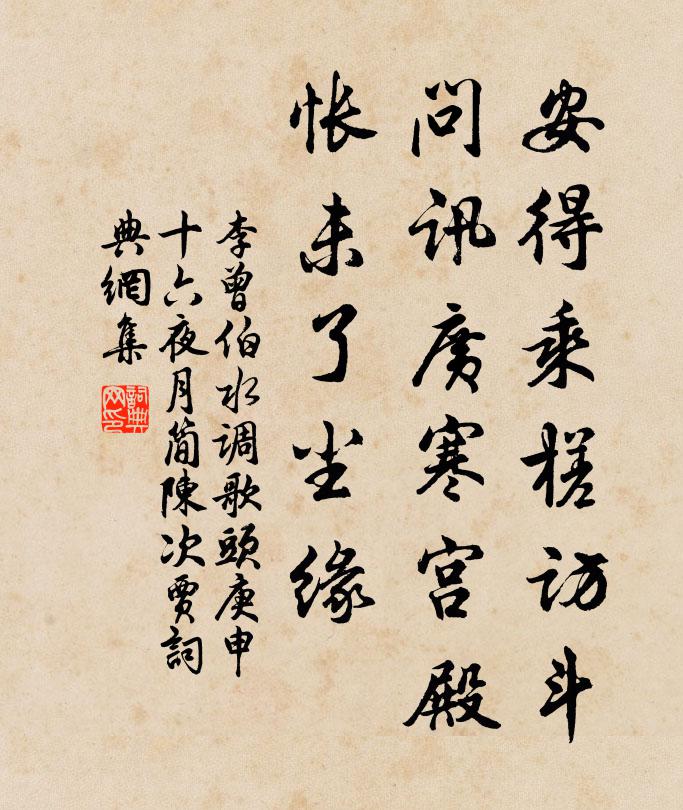 安得乘槎访斗
问讯广寒宫殿
怅未了尘缘
李曾伯水调歌头庚申
十六夜月简陈次贾词
典網集
詞典网印